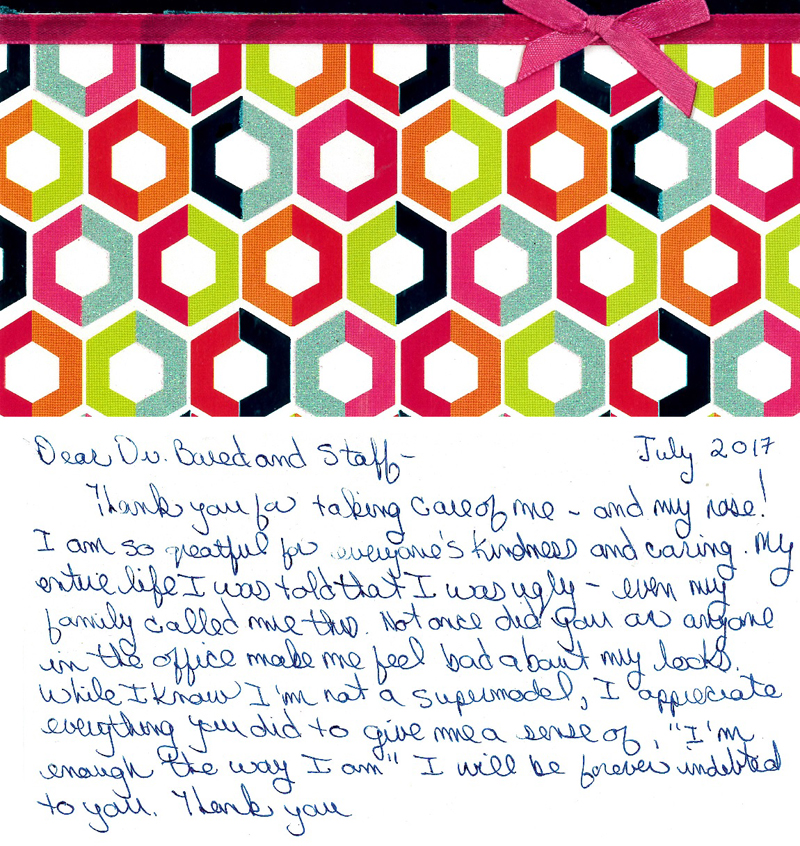 Dear Dr. Bared and Staff- July 2017
Thank you for taking care of me - and my nose!
I am so greatful for everyone's kindness and caring. My
entire life I was told that I was ugly - even my
family called me this. Not once did you or anyone
in the office make me feel bad about my looks.
While I know I'm not a supermodel, I appreciate
everything you did to give me a sense of, "I'm
enough the way I am" I will be forever indebted
to you. Thank you